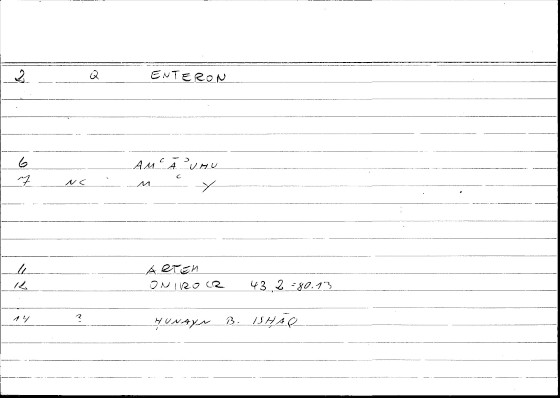 2 Q ENTERON
6 AMʿĀʾUHU
7 NC M ʿ Y
11 ARTEM
12 ONIROCR 43,2-80.13
14 ? ḤUNAYN B. ISḤĀQ